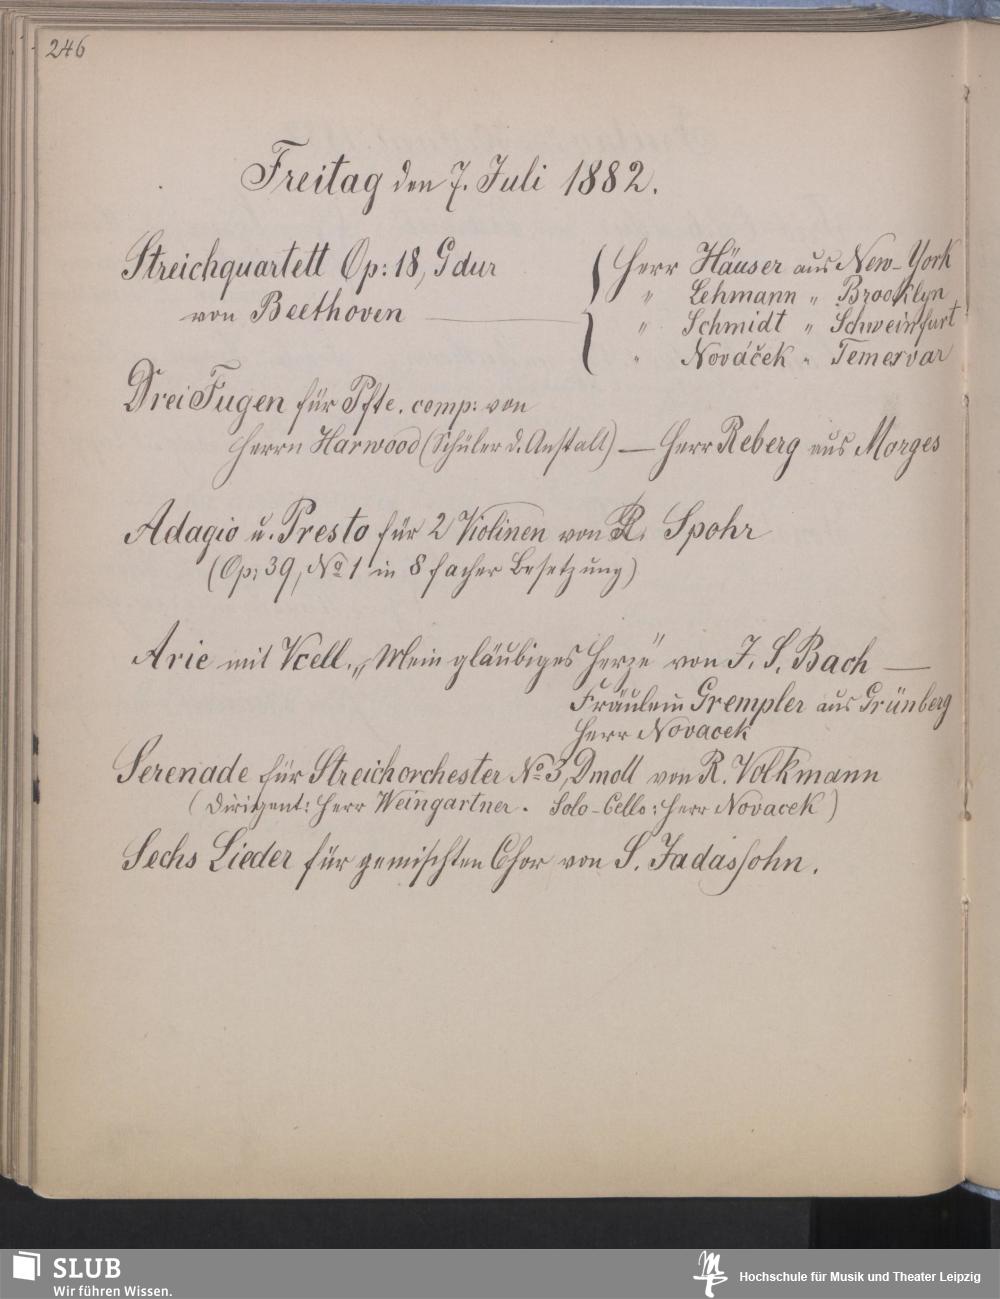 246
Freitag den 7. Juli 1882.
Streichquartett Op: 18, Gdur
von Beethoven —
Herr Häuser aus New-York
" Lehmann " Brooklyn
" Schmidt " Schweinfurt
" Nováček " Temesvar
Drei Fugen für Pfte. comp: von
Herrn Harwood (Schüler d. Anstalt) — Herr Reberg aus Morges
Adagio u. Presto für 2 Violinen von L. Spohr
(Op: 39, No 1 in 8 facher Besetzung)
Arie mit Vcell. „Mein gläubiges Herze" von J. S. Bach —
Fräulein Grempler aus Grünberg
Herr Novacek
Serenade für Streichorchester No 3, Dmoll von R. Volkmann
(Dirigent: Herr Weingartner. Solo-Cello: Herr Novacek)
Sechs Lieder für gemischten Chor von S. Jadassohn.
SLUB
Wir führen Wissen.
Hochschule für Musik und Theater Leipzig